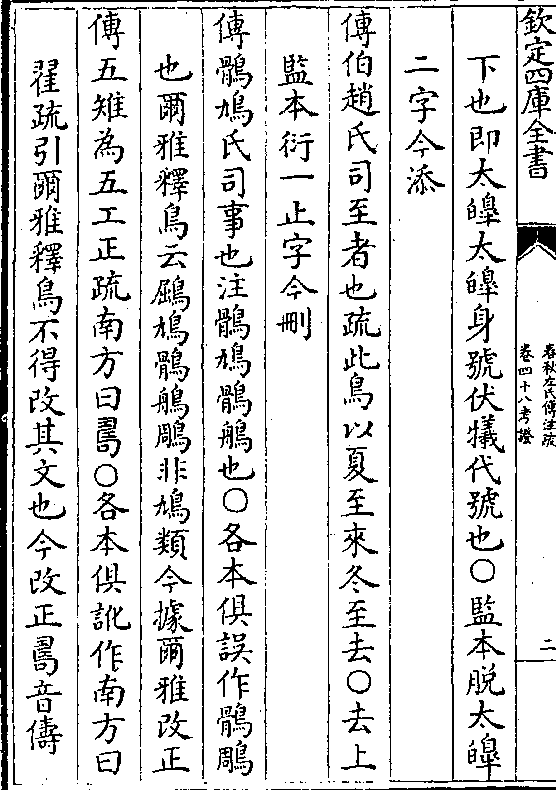 欽定四庫全書
春秋左氏傳注疏
卷四十八考證
二
下也即太皥太皥身號伏犧代號也○監本脫太皥
二字今添
傳伯趙氏司至者也疏此鳥以夏至來冬至去○去上
監本衍一止字今刪
傳鶻鳩氏司事也注鶻鳩鶻鵃也○各本俱誤作鶻鵰
也爾雅釋鳥云鶌鳩鶻鵃鵰非鳩類今據爾雅改正
傳五雉為五工正疏南方曰𠷎○各本俱訛作南方曰
翟疏引爾雅釋鳥不得改其文也今改正𠷎音儔